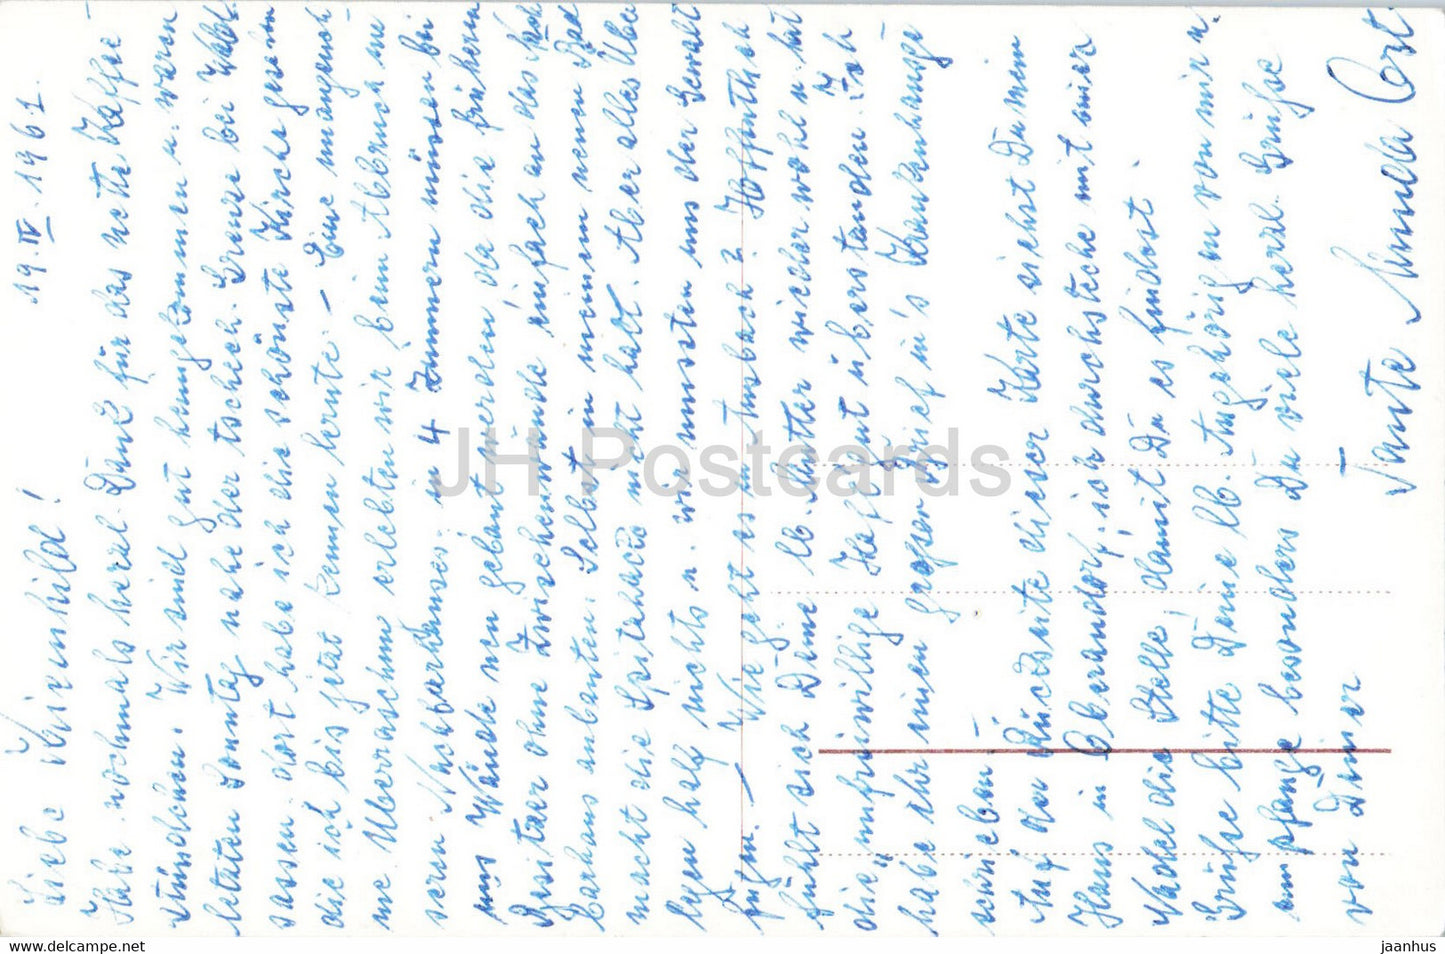 19.IV.1961.
Liebe Kriemhild!
Habe nochmals herzl. Dank für das nette Kaffee
stündchen. Wir sind gut heimgekommen u. waren
letzten Sonntag nahe der tschech. Grenze bei
sassen. dort habe ich die schönste Kirche gesehen
die ich bis jetzt kennen lernte. – Eine unangeneh
me Überraschung erlebten wir beim Abbruch un
seren Nachbarhauses; in 4 Zimmern müssen bei
uns Wände neu gebaut werden, da die früheren
Besitzer ohne Zwischenwände einfach an das
haus anbauten. Selbst in meinem neuen Bad
macht die Spitzhacke nicht halt. Aber alles Über
legen half nichts u. wir mussten uns der Gewalt
fügen. – Wie geht es in Ansbach? Hoffentlich
fühlt sich Deine lb. Mutter wieder wohl u. hat
die unfreiwillige Haft gut überstanden. Ich
habe ihr einen Brief in's Krankenhaus ge
schrieben –
Auf der Rückseite dieser Karte siehst Du mein
Haus in Oberndorf; ich durchsteche mit einer
Nadel die Stelle, damit Du es findest.
Grüsse bitte Deine lb. Angehörigen von mir u.
empfange besonders Du viele herzl. Grüsse
von Deiner
Tante
JH Postcards
www.delcampe.net
jaanhus